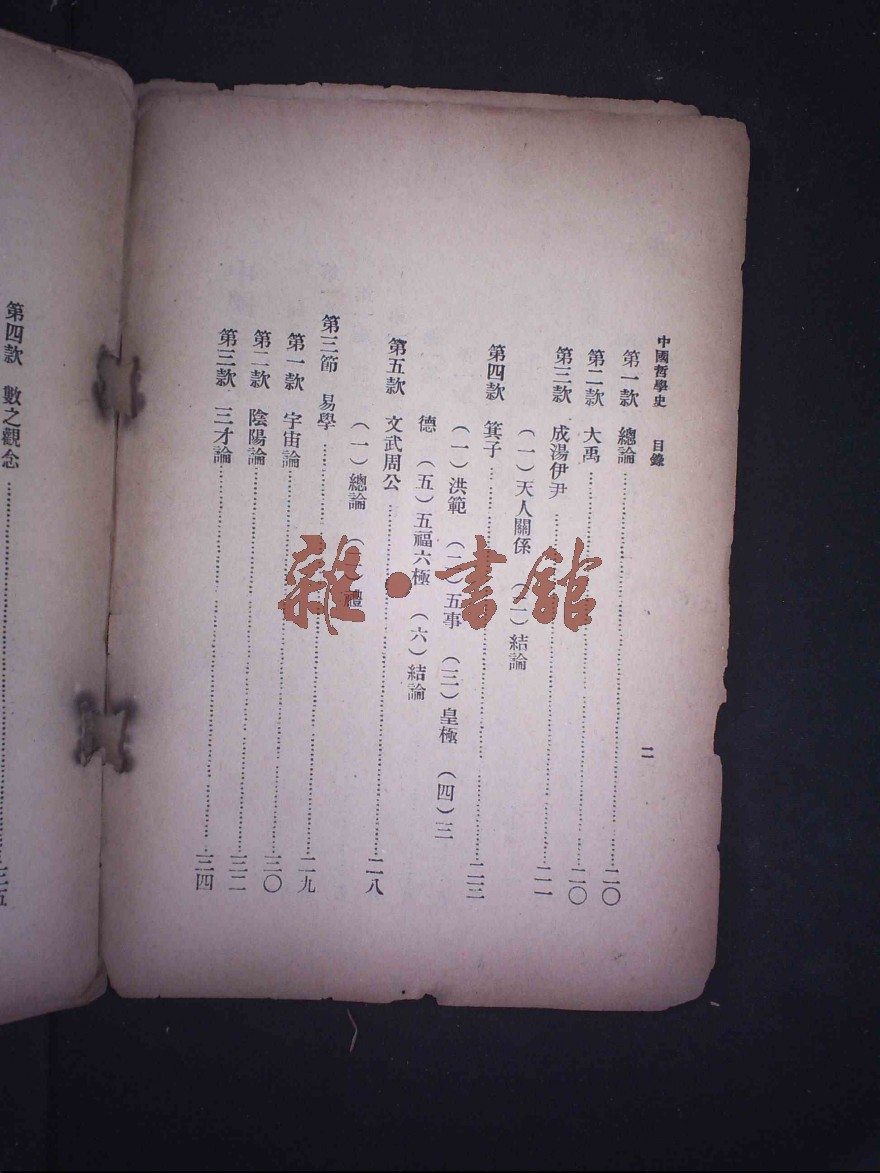 中國哲學史 目錄
二
第一款 總論……二〇
第二款 大禹……二〇
第三款 成湯伊尹……二一
（一）天人關係 （二）結論
第四款 箕子……二三
（一）洪範 （二）五事 （三）皇極 （四）三
德 （五）五福六極 （六）結論
第五款 文武周公……二八
（一）總論 （二）禮
第三節 易學……二九
第一款 宇宙論……三〇
第二款 陰陽論……三二
第三款 三才論……三四
第四款 數之觀念……三五
雜·書館